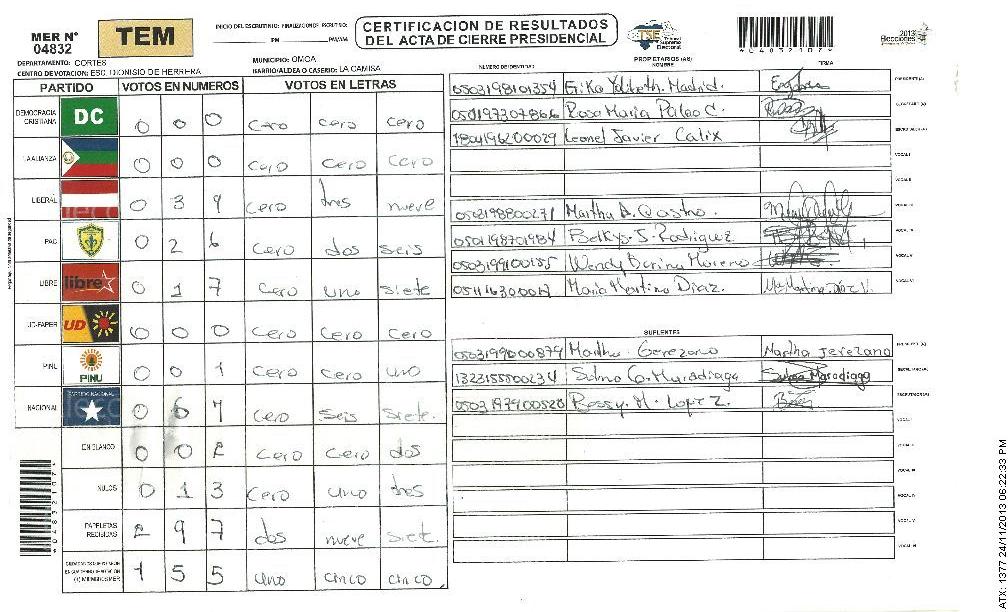 MER N° 04832
TEM
INICIO DEL ESCRUTINIO: FINALIZACION DE ESCRUTINIO:
PM PM/AM
CERTIFICACION DE RESULTADOS
DEL ACTA DE CIERRE PRESIDENCIAL
TSE Tribunal Supremo Electoral
2013 Elecciones
DEPARTAMENTO: CORTES
MUNICIPIO: OMOA
CENTRO DE VOTACION: ESC. DIONISIO DE HERRERA
BARRIO/ALDEA O CASERIO: LA CAMISA
PARTIDO VOTOS EN NUMEROS VOTOS EN LETRAS
DEMOCRACIA CRISTIANA DC 0 0 0 cero cero cero
LA ALIANZA 0 0 0 cero cero cero
LIBERAL 0 3 9 cero tres nueve
PAC 0 2 6 cero dos seis
LIBRE libre 0 1 7 cero uno siete
UD-FAPER UD 0 0 0 cero cero cero
PINU PINU 0 0 1 cero cero uno
NACIONAL 0 6 7 cero seis siete.
EN BLANCO 0 0 2 cero cero dos
NULOS 0 1 3 cero uno tres
PAPELETAS RECIBIDAS 2 9 7 dos nueve siete.
1 5 5 uno cinco cinco.
NUMERO DE IDENTIDAD PROPIETARIOS (AS) NOMBRE FIRMA
0503198101354 Erika Yolibeth Madrid. PRESIDENTE (A)
0501197307866 Rosa Maria Paleo C. SECRETARIO (A)
1804196200029 Leonel Javier Calix ESCRUTADOR (A)
VOCAL I
VOCAL II
0503198800271 Martha A. Castro. VOCAL III
0501198701984 Belkys S. Rodriguez VOCAL IV
0503199100185 Wendy Dorina Moreno VOCAL V
Maria Martina Diaz. VOCAL VI
SUPLENTES
0503199000879 Martha Gerezano Martha Jerezano
1323155500234 Selma G. Maradiaga Selma Maradiaga
0503197900528 Bessy M. Lopez. ESCRUTADOR (A)
VOCAL I
VOCAL II
VOCAL III
VOCAL IV
VOCAL V
VOCAL VI
ATX: 1377 24/11/2013 06:22:33 PM